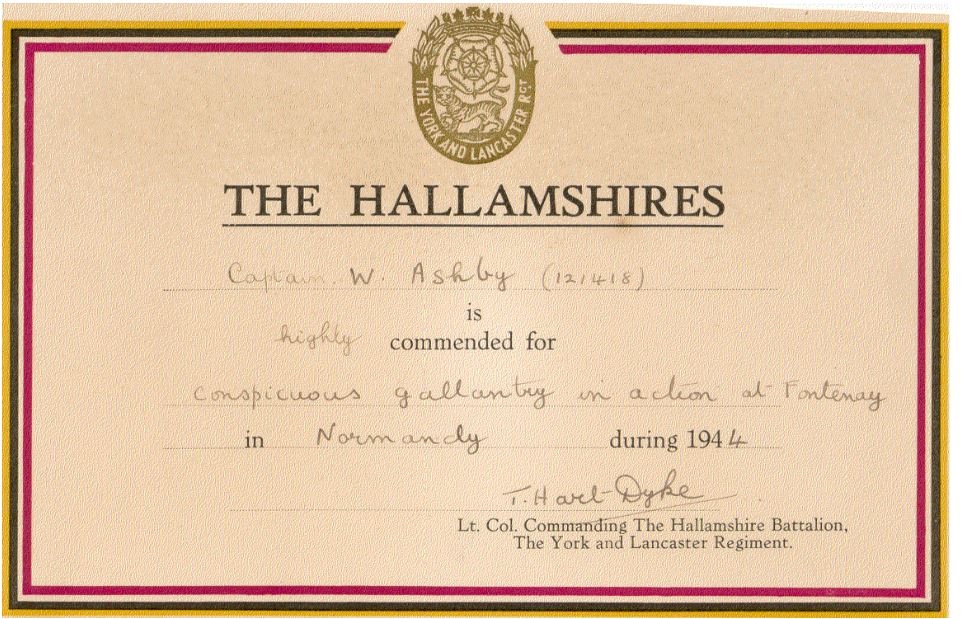 THE YORK AND LANCASTER RGT
THE HALLAMSHIRES
Captain W. Ashby (121418)
is
highly commended for
conspicuous gallantry in action at Fontenay
in Normandy during 1944
T. Hart-Dyke
Lt. Col. Commanding The Hallamshire Battalion,
The York and Lancaster Regiment.